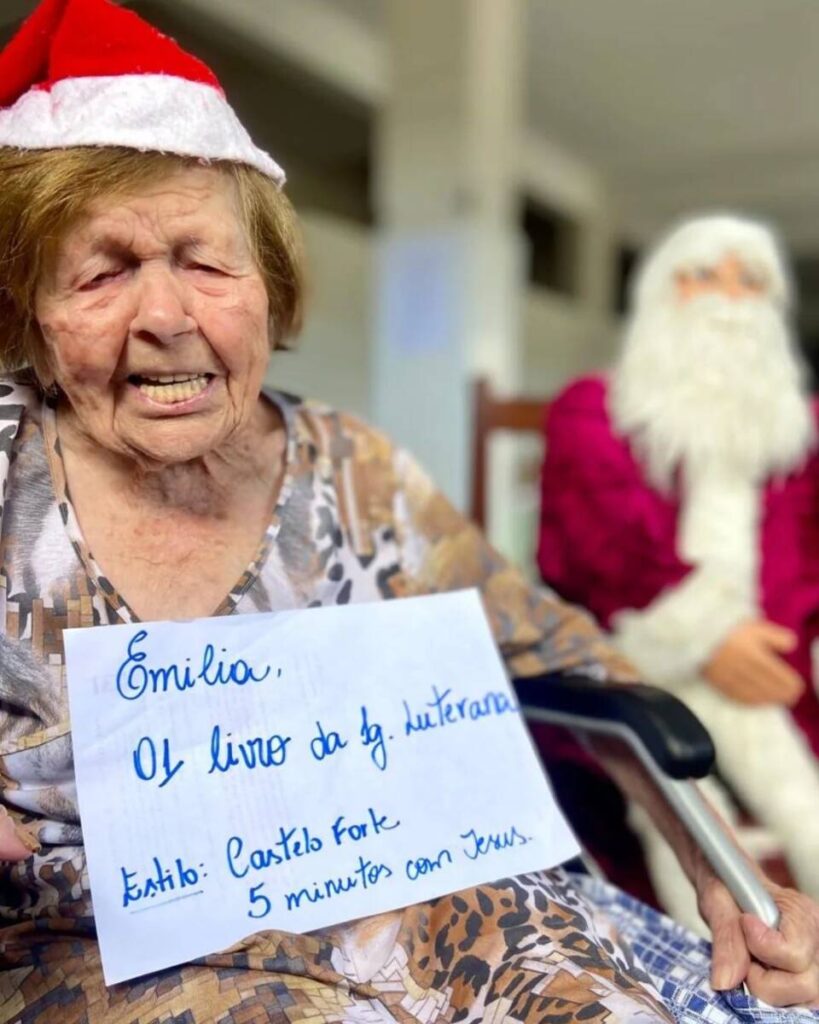 Emilia,
01 livro da Ig. Luterana
Estilo: Castelo Forte
5 minutos com Jesus.